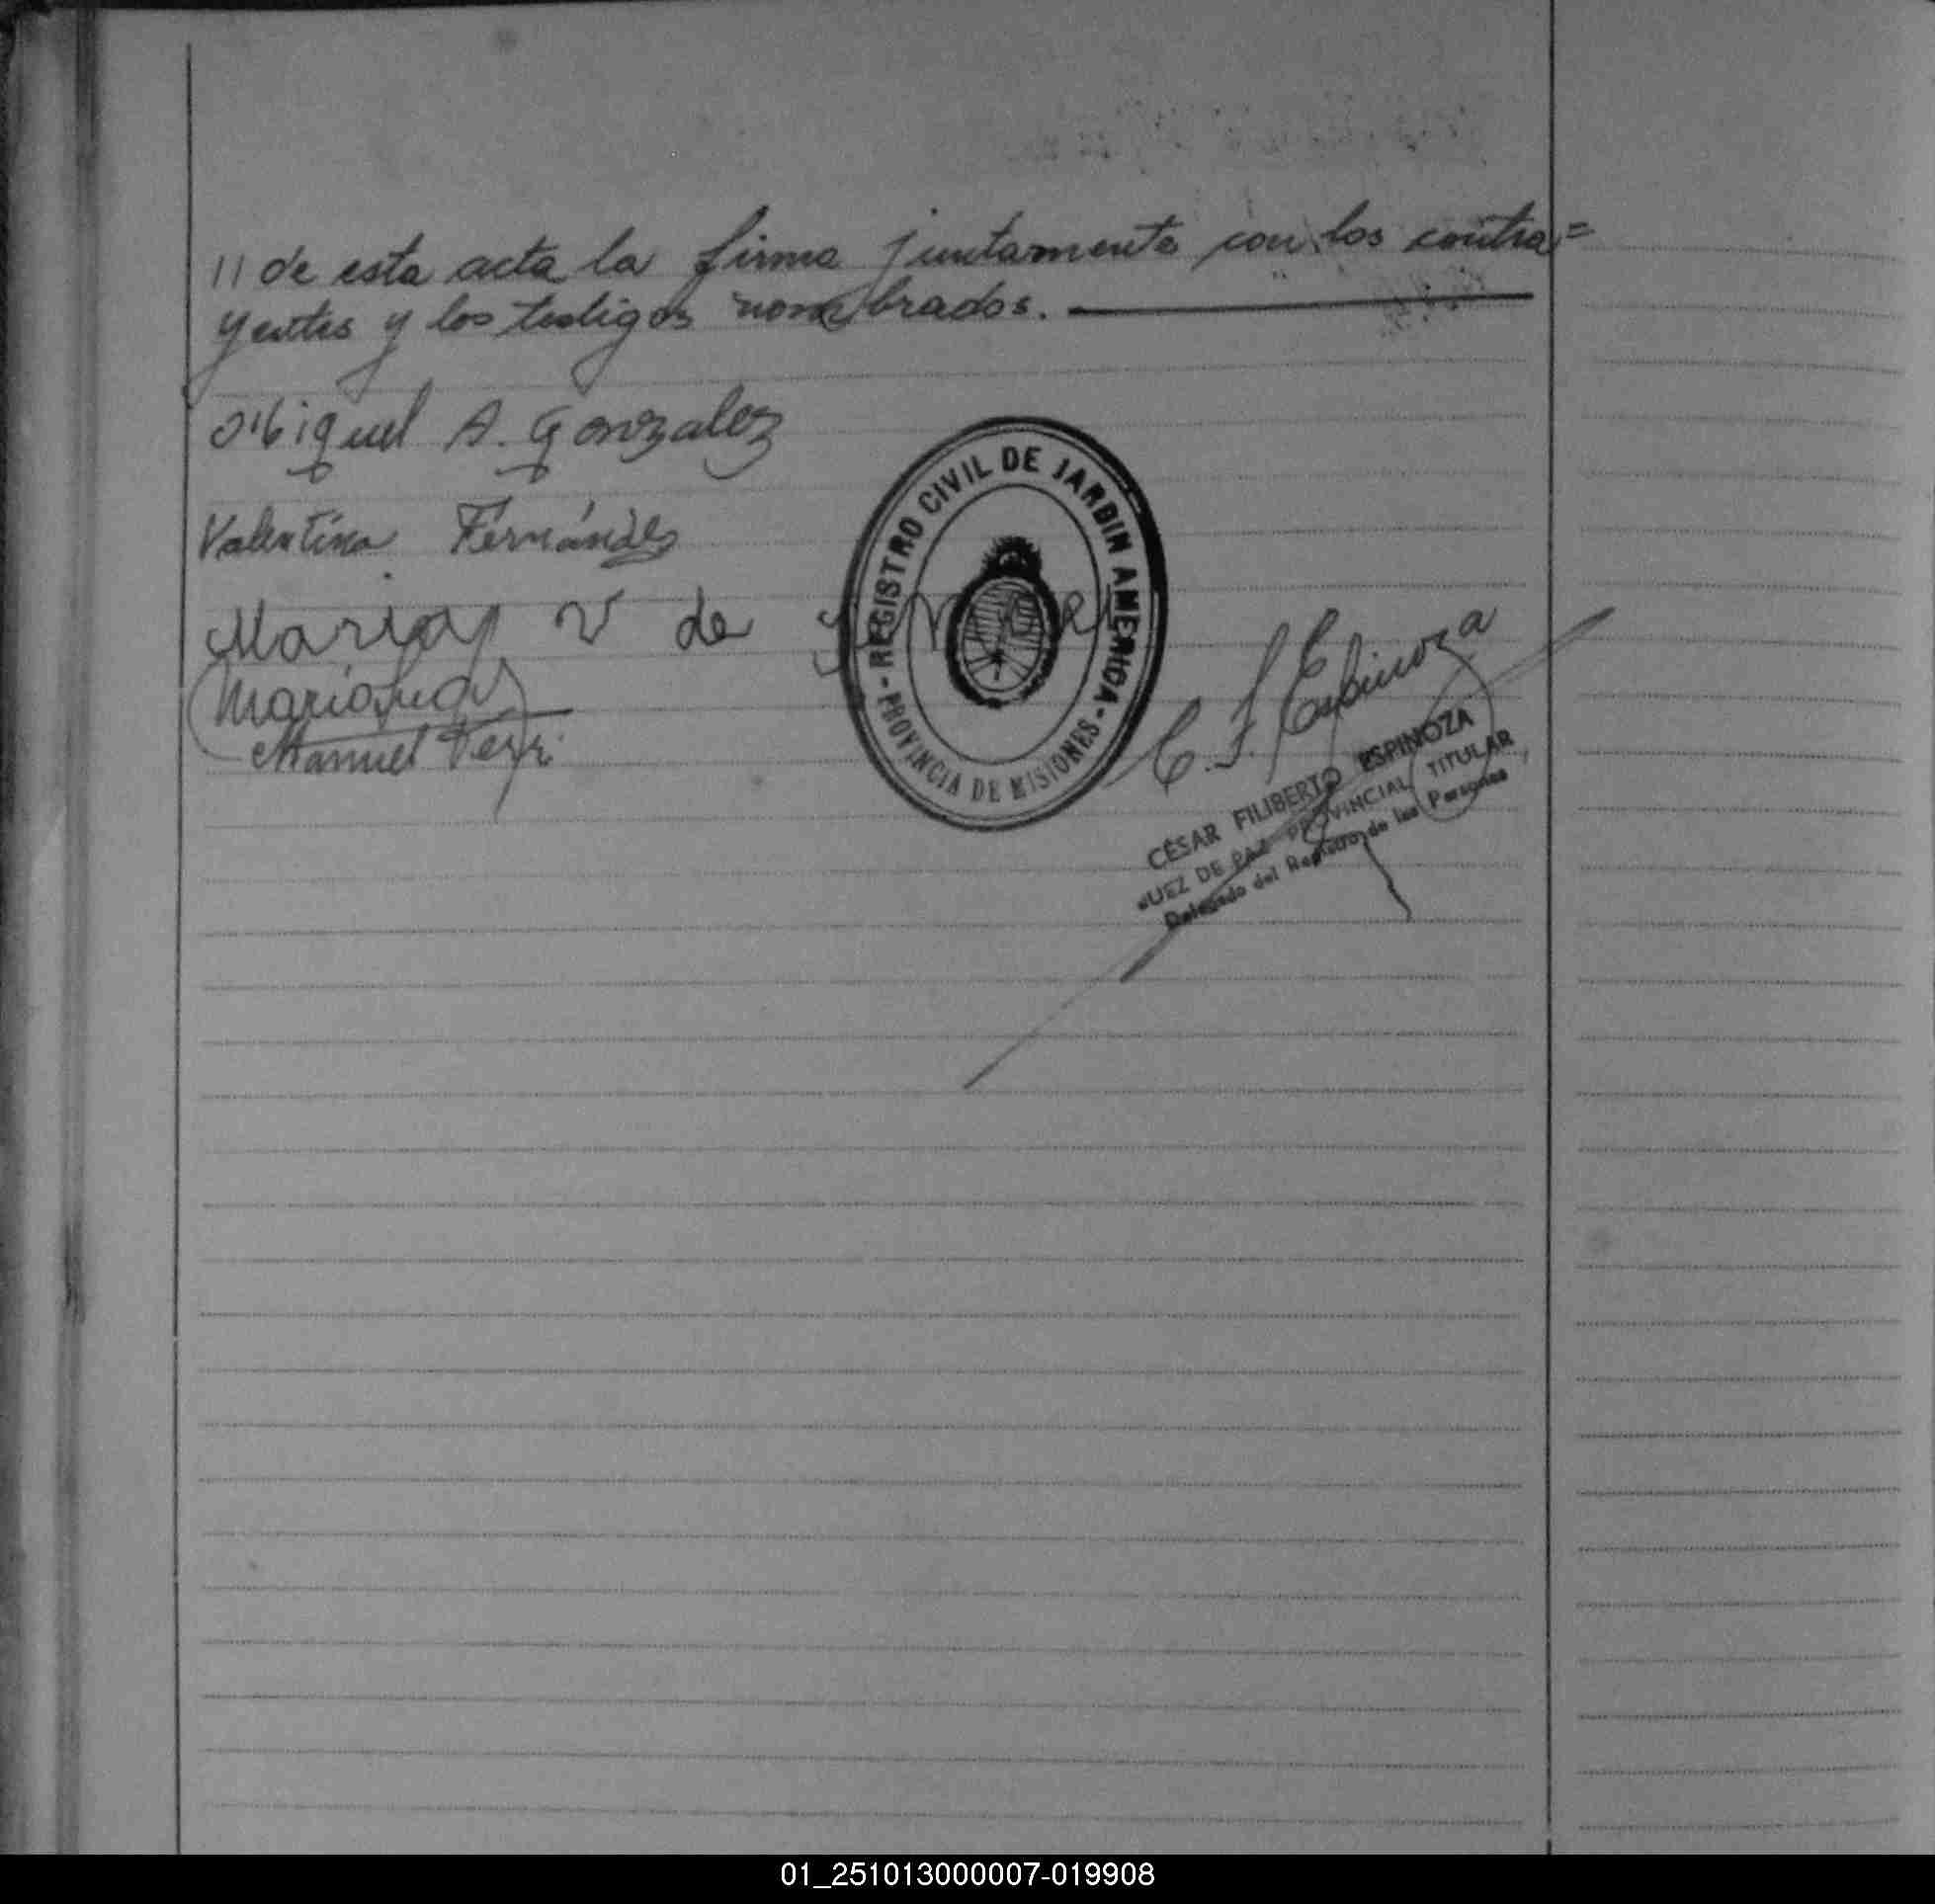 // de esta acta la firma juntamente con los contra=
yentes y los testigos nombrados.
Miguel A. Gonzalez
Valentina Fernándes
Maria V de
Manuel
REGISTRO CIVIL DE JARDIN AMERICA
PROVINCIA DE MISIONES
C. F. Espinoza
CÉSAR FILIBERTO ESPINOZA
JUEZ DE PAZ PROVINCIAL TITULAR
Delegado del Registro de las Personas
01_251013000007-019908